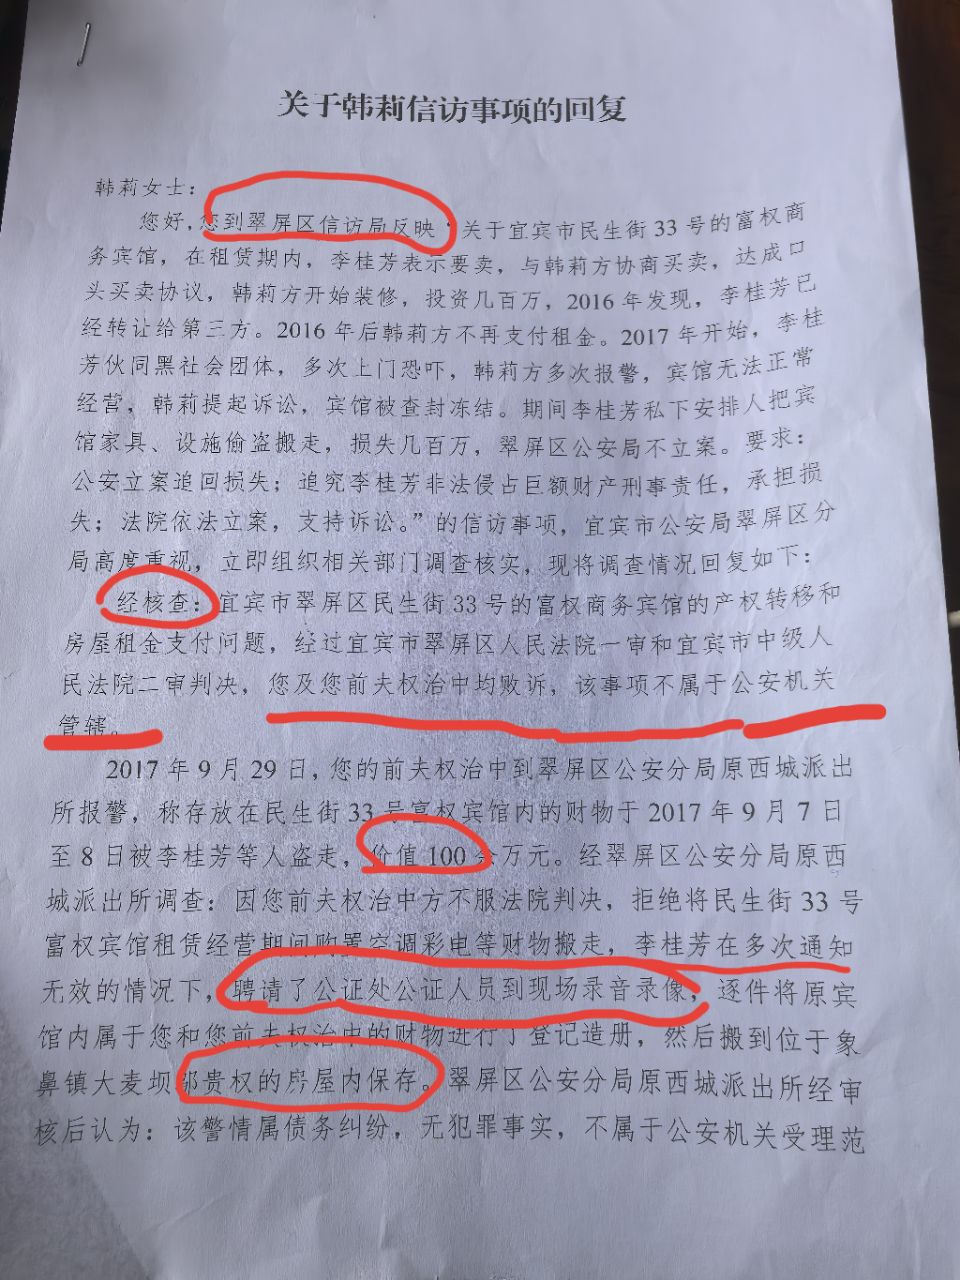 关于韩莉信访事项的回复
韩莉女士：
您好，您到翠屏区信访局反映“关于宜宾市民生街 33 号的富权商
务宾馆，在租赁期内，李桂芳表示要卖，与韩莉方协商买卖，达成口
头买卖协议，韩莉方开始装修，投资几百万，2016 年发现，李桂芳已
经转让给第三方。2016 年后韩莉方不再支付租金。2017 年开始，李桂
芳伙同黑社会团体，多次上门恐吓，韩莉方多次报警，宾馆无法正常
经营，韩莉提起诉讼，宾馆被查封冻结。期间李桂芳私下安排人把宾
馆家具、设施偷盗搬走，损失几百万，翠屏区公安局不立案。要求：
公安立案追回损失；追究李桂芳非法侵占巨额财产刑事责任，承担损
失；法院依法立案，支持诉讼。”的信访事项，宜宾市公安局翠屏区分
局高度重视，立即组织相关部门调查核实，现将调查情况回复如下：
经核查：宜宾市翠屏区民生街 33 号的富权商务宾馆的产权转移和
房屋租金支付问题，经过宜宾市翠屏区人民法院一审和宜宾市中级人
民法院二审判决，您及您前夫权治中均败诉，该事项不属于公安机关
管辖。
2017 年 9 月 29 日，您的前夫权治中到翠屏区公安分局原西城派出
所报警，称存放在民生街 33 号富权宾馆内的财物于 2017 年 9 月 7 日
至 8 日被李桂芳等人盗走，价值 100 余万元。经翠屏区公安分局原西
城派出所调查：因您前夫权治中方不服法院判决，拒绝将民生街 33 号
富权宾馆租赁经营期间购置空调彩电等财物搬走，李桂芳在多次通知
无效的情况下，聘请了公证处公证人员到现场录音录像，逐件将原宾
馆内属于您和您前夫权治中的财物进行了登记造册，然后搬到位于象
鼻镇大麦坝邬贵权的房屋内保存。翠屏区公安分局原西城派出所经审
核后认为：该警情属债务纠纷，无犯罪事实，不属于公安机关受理范